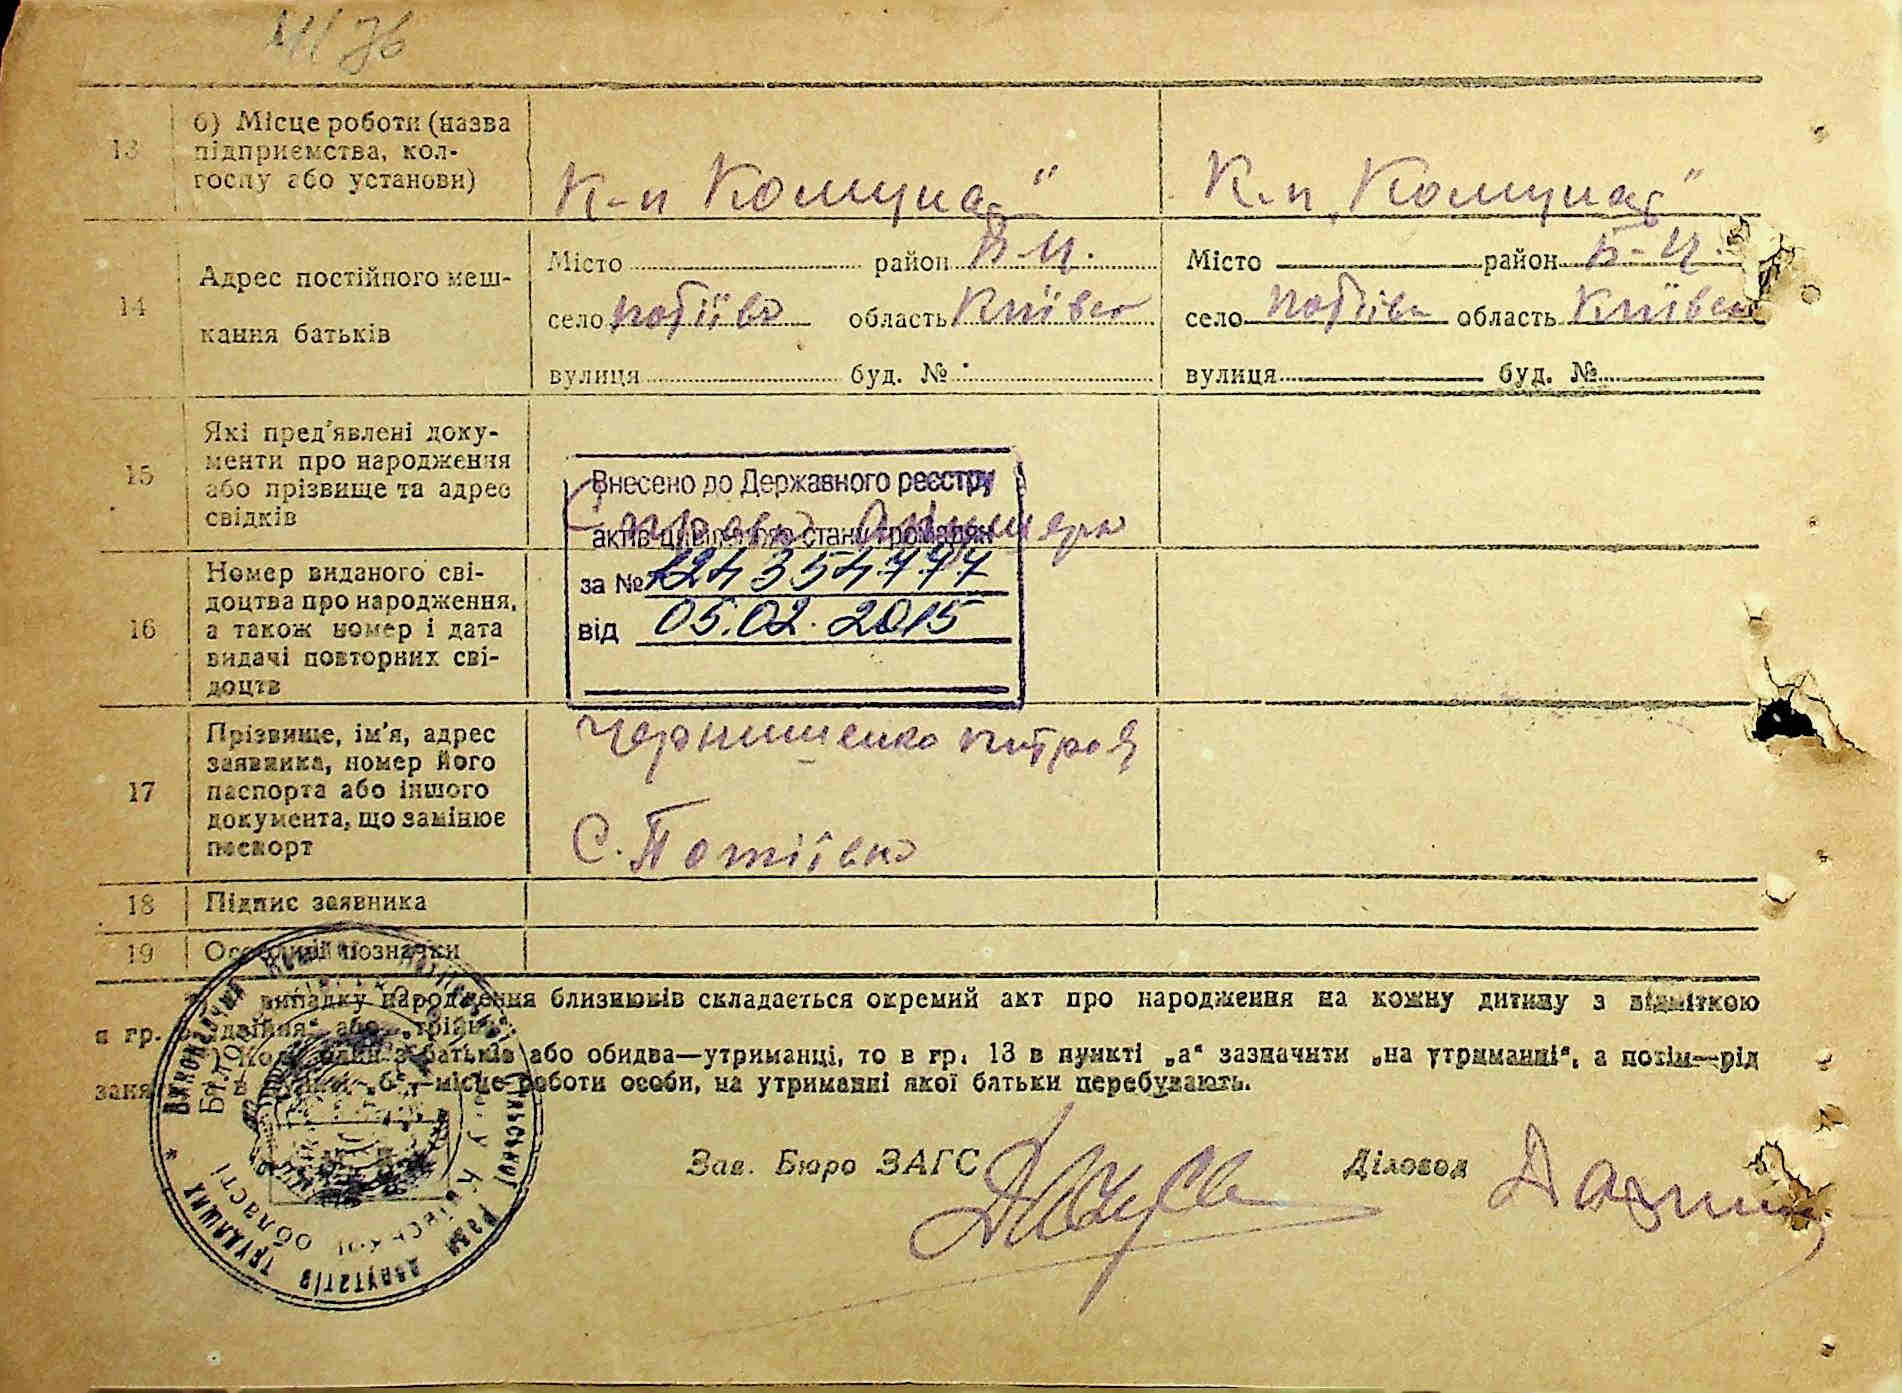 13
б) Місце роботи (назва
підприємства, кол-
госпу або установи)
К-п Комунар"
К-п „Комунар"
14
Адрес постійного меш-
кання батьків
Місто район Б-Ц.
село Потіївка область Київська
вулиця буд. №
Місто район Б-Ц.
село Потіївка область Київська
вулиця буд. №
15
Які пред'явлені доку-
менти про народження
або прізвище та адрес
свідків
Внесено до Державного реєстру
актів цивільного стану громадян
за № 124354777
від 05.02.2015
16
Номер виданого сві-
доцтва про народження,
а також номер і дата
видачі повторних сві-
доцтв
17
Прізвище, ім'я, адрес
заявника, номер його
паспорта або іншого
документа, що замінює
паспорт
Чернишенко
С. Потіївка
18
Підпис заявника
19
Особливі позначки
випадку народження близнюків складається окремий акт про народження на кожну дитину з відміткою
в гр. „двійня" або „трійня".
Коли один з батьків або обидва—утриманці, то в гр. 13 в пункті „а" зазначити „на утриманні", а потім—рід
в пункті „б"—місце роботи особи, на утриманні якої батьки перебувають.
Зав. Бюро ЗАГС
Діловод
Виконавчий комітет Потіївської сільської Ради депутатів трудящих
Київської області